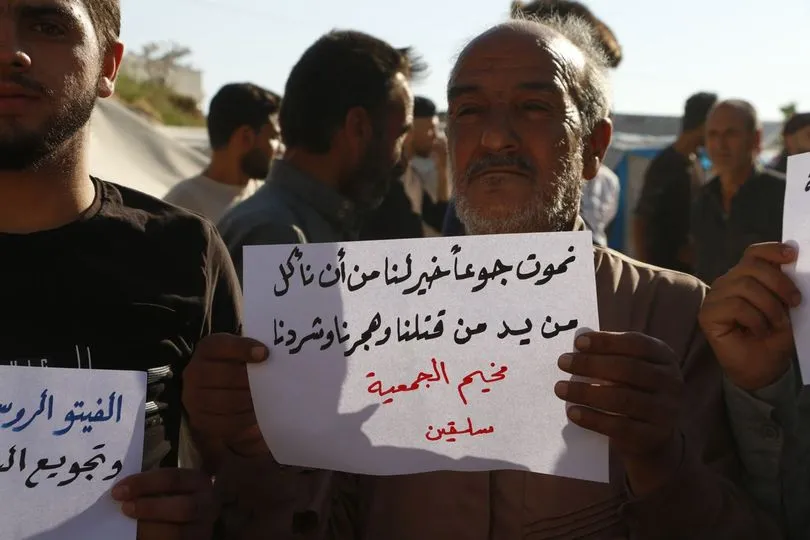 نموت جوعاً خير لنا من أن نأكل
من يد من قتلنا وهجرنا وشردنا
مخيم الجمعية
سلقين
الفيتو الروس
وتجويع ال